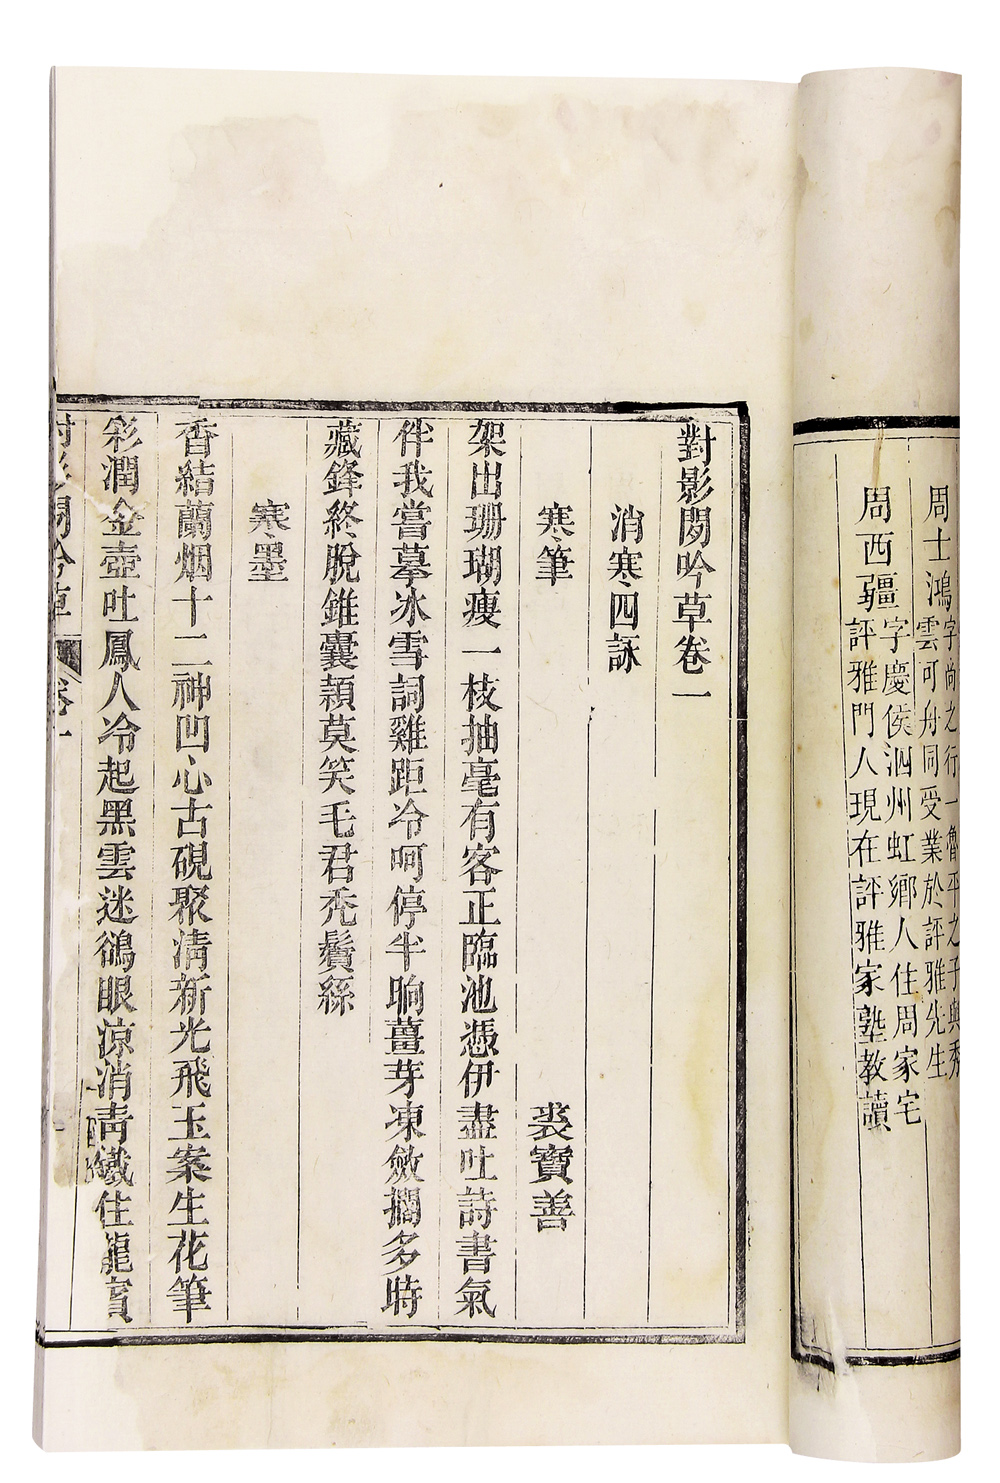 周士鴻字尚之行一魯平之子與秀
雲可舟同受業於評雅先生
周西疆字慶侯泗州虹鄉人住周家宅
評雅門人現在評雅家塾教讀
對影閑吟草卷一
消寒四詠
寒筆 裘寶善
架出珊瑚瘦一枝抽毫有客正臨池憑伊盡吐詩書氣
伴我嘗摹冰雪詞雞距冷呵停半晌薑芽凍斂擱多時
藏鋒終脫錐囊穎莫笑毛君禿鬢絲
寒墨
香結蘭烟十二神凹心古硯聚清新光飛玉案生花筆
彩潤金壺吐鳳人冷起黑雲迷鵒眼涼消青鐵住龍賓
對影閑吟草 卷一